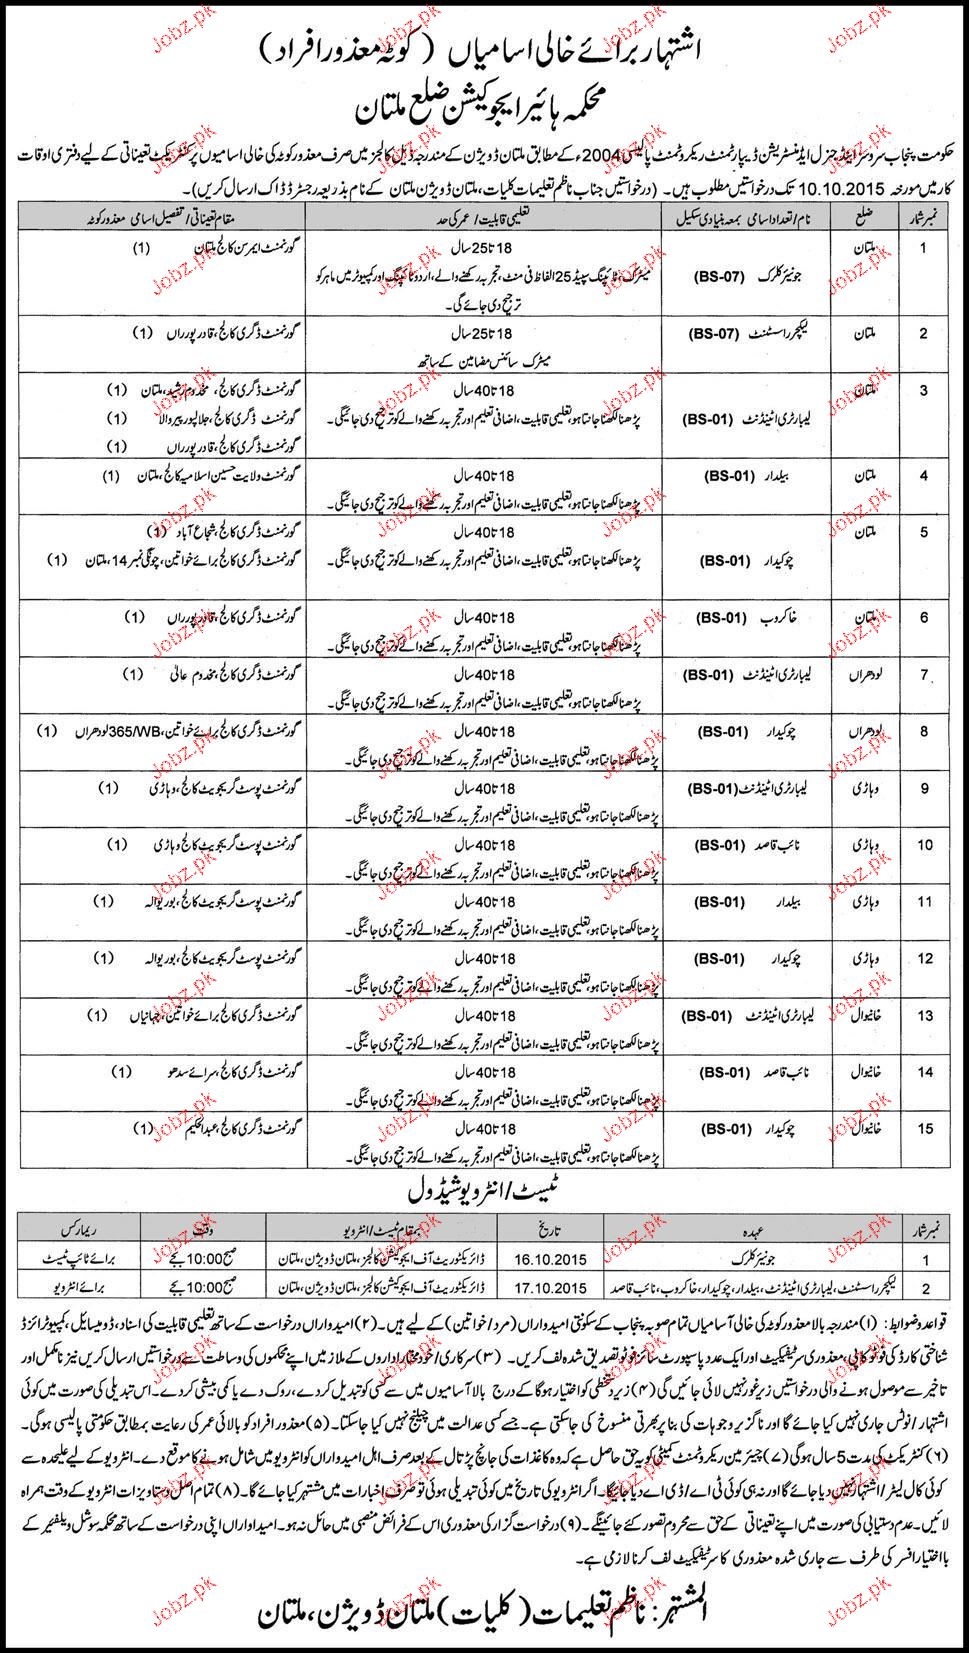 اشتہار برائے خالی اسامیاں (کوٹہ معذور افراد)
محکمہ ہائیر ایجوکیشن ضلع ملتان
حکومت پنجاب سروسز اینڈ جنرل ایڈمنسٹریشن ڈیپارٹمنٹ ریکروٹمنٹ پالیسی 2004ء کے مطابق ملتان ڈویژن کے مندرجہ ذیل کالجز میں صرف معذور کوٹہ کی خالی اسامیوں پر کنٹریکٹ تعیناتی کے لیے دفتری اوقات
کار میں مورخہ 10.10.2015 تک درخواستیں مطلوب ہیں۔ (درخواستیں جناب ناظم تعلیمات کلیات، ملتان ڈویژن ملتان کے نام بذریعہ رجسٹرڈ ڈاک ارسال کریں)۔
نمبر شمار ضلع نام/تعداد اسامی بمعہ بنیادی سکیل تعلیمی قابلیت/عمر کی حد مقام تعیناتی/تفصیل اسامی معذور کوٹہ
1 ملتان جونیئر کلرک (BS-07) 18 تا 25 سال گورنمنٹ ایمرسن کالج ملتان (1)
میٹرک، ٹائپنگ سپیڈ 25 الفاظ فی منٹ، تجربہ رکھنے والے، اردو ٹائپنگ اور کمپیوٹر میں ماہر کو
ترجیح دی جائے گی۔
2 ملتان لیکچر اسسٹنٹ (BS-07) 18 تا 25 سال گورنمنٹ ڈگری کالج، قادر پورراں (1)
میٹرک سائنس مضامین کے ساتھ
3 ملتان لیبارٹری اٹینڈنٹ (BS-01) 18 تا 40 سال گورنمنٹ ڈگری کالج، مخدوم رشید، ملتان (1)
پڑھنا لکھنا جانتا ہو، تعلیمی قابلیت، اضافی تعلیم اور تجربہ رکھنے والے کو ترجیح دی جائیگی۔ گورنمنٹ ڈگری کالج، جلالپور پیر والا (1)
گورنمنٹ ڈگری کالج، قادر پورراں (1)
4 ملتان بیلدار (BS-01) 18 تا 40 سال گورنمنٹ ولایت حسین اسلامیہ کالج، ملتان (1)
پڑھنا لکھنا جانتا ہو، تعلیمی قابلیت، اضافی تعلیم اور تجربہ رکھنے والے کو ترجیح دی جائیگی۔
5 ملتان چوکیدار (BS-01) 18 تا 40 سال گورنمنٹ ڈگری کالج، شجاع آباد (1)
پڑھنا لکھنا جانتا ہو، تعلیمی قابلیت، اضافی تعلیم اور تجربہ رکھنے والے کو ترجیح دی جائیگی۔ گورنمنٹ ڈگری کالج برائے خواتین، چونگی نمبر 14، ملتان (1)
6 ملتان خاکروب (BS-01) 18 تا 40 سال گورنمنٹ ڈگری کالج، قادر پورراں (1)
پڑھنا لکھنا جانتا ہو، تعلیمی قابلیت، اضافی تعلیم اور تجربہ رکھنے والے کو ترجیح دی جائیگی۔
7 لودھراں لیبارٹری اٹینڈنٹ (BS-01) 18 تا 40 سال گورنمنٹ ڈگری کالج، مخدوم عالی (1)
پڑھنا لکھنا جانتا ہو، تعلیمی قابلیت، اضافی تعلیم اور تجربہ رکھنے والے کو ترجیح دی جائیگی۔
8 لودھراں چوکیدار (BS-01) 18 تا 40 سال گورنمنٹ ڈگری کالج برائے خواتین، 365/WB لودھراں (1)
پڑھنا لکھنا جانتا ہو، تعلیمی قابلیت، اضافی تعلیم اور تجربہ رکھنے والے کو ترجیح دی جائیگی۔
9 وہاڑی لیبارٹری اٹینڈنٹ (BS-01) 18 تا 40 سال گورنمنٹ پوسٹ گریجویٹ کالج، وہاڑی (1)
پڑھنا لکھنا جانتا ہو، تعلیمی قابلیت، اضافی تعلیم اور تجربہ رکھنے والے کو ترجیح دی جائیگی۔
10 وہاڑی نائب قاصد (BS-01) 18 تا 40 سال گورنمنٹ پوسٹ گریجویٹ کالج وہاڑی (1)
پڑھنا لکھنا جانتا ہو، تعلیمی قابلیت، اضافی تعلیم اور تجربہ رکھنے والے کو ترجیح دی جائیگی۔
11 وہاڑی بیلدار (BS-01) 18 تا 40 سال گورنمنٹ پوسٹ گریجویٹ کالج، بوریوالہ (1)
پڑھنا لکھنا جانتا ہو، تعلیمی قابلیت، اضافی تعلیم اور تجربہ رکھنے والے کو ترجیح دی جائیگی۔
12 وہاڑی چوکیدار (BS-01) 18 تا 40 سال گورنمنٹ پوسٹ گریجویٹ کالج، بوریوالہ (1)
پڑھنا لکھنا جانتا ہو، تعلیمی قابلیت، اضافی تعلیم اور تجربہ رکھنے والے کو ترجیح دی جائیگی۔
13 خانیوال لیبارٹری اٹینڈنٹ (BS-01) 18 تا 40 سال گورنمنٹ ڈگری کالج برائے خواتین، جہانیاں (1)
پڑھنا لکھنا جانتا ہو، تعلیمی قابلیت، اضافی تعلیم اور تجربہ رکھنے والے کو ترجیح دی جائیگی۔
14 خانیوال نائب قاصد (BS-01) 18 تا 40 سال گورنمنٹ ڈگری کالج، سرائے سدھو (1)
پڑھنا لکھنا جانتا ہو، تعلیمی قابلیت، اضافی تعلیم اور تجربہ رکھنے والے کو ترجیح دی جائیگی۔
15 خانیوال چوکیدار (BS-01) 18 تا 40 سال گورنمنٹ ڈگری کالج، عبدالحکیم (1)
پڑھنا لکھنا جانتا ہو، تعلیمی قابلیت، اضافی تعلیم اور تجربہ رکھنے والے کو ترجیح دی جائیگی۔
ٹیسٹ/انٹرویو شیڈول
نمبر شمار عہدہ تاریخ بمقام ٹیسٹ/انٹرویو وقت ریمارکس
1 جونیئر کلرک 16.10.2015 ڈائریکٹوریٹ آف ایجوکیشن کالجز، ملتان ڈویژن، ملتان صبح 10:00 بجے برائے ٹائپ ٹیسٹ
2 لیکچر اسسٹنٹ، لیبارٹری اٹینڈنٹ، بیلدار، چوکیدار، خاکروب، نائب قاصد 17.10.2015 ڈائریکٹوریٹ آف ایجوکیشن کالجز، ملتان ڈویژن، ملتان صبح 10:00 بجے برائے انٹرویو
قواعد و ضوابط: (۱) مندرجہ بالا معذور کوٹہ کی خالی آسامیاں تمام صوبہ پنجاب کے سکونتی امیدواران (مرد/خواتین) کے لیے ہیں۔ (۲) امیدواران درخواست کے ساتھ تعلیمی قابلیت کی اسناد، ڈومیسائل، کمپیوٹرائزڈ
شناختی کارڈ کی فوٹو کاپی، معذوری سرٹیفکیٹ اور ایک عدد پاسپورٹ سائز فوٹو تصدیق شدہ لف کریں۔ (۳) سرکاری/خود مختار اداروں کے ملازمین اپنے محکموں کی وساطت سے درخواستیں ارسال کریں نیز نامکمل اور
تاخیر سے موصول ہونے والی درخواستیں زیر غور نہیں لائی جائیں گی (۴) زیر دستخطی کو اختیار ہوگا کے درج بالا آسامیوں میں سے کسی کو تبدیل کر دے، روک دے یا کمی بیشی کر دے۔ اس تبدیلی کی صورت میں کوئی
اشتہار/نوٹس جاری نہیں کیا جائے گا اور ناگزیر وجوہات کی بنا پر بھرتی منسوخ کی جاسکتی ہے۔ جسے کسی عدالت میں چیلنج نہیں کیا جاسکتا۔ (۵) معذور افراد کو بالائی عمر کی رعایت بمطابق حکومتی پالیسی ہوگی۔
(۶) کنٹریکٹ کی مدت 5 سال ہوگی (۷) چیئرمین ریکروٹمنٹ کمیٹی کو یہ حق حاصل ہے کہ وہ کاغذات کی جانچ پڑتال کے بعد صرف اہل امیدواران کو انٹرویو میں شامل ہونے کا موقع دے۔ انٹرویو کے لیے علیحدہ سے
کوئی کال لیٹر/اشتہار نہیں دیا جائے گا اور نہ ہی کوئی ٹی اے/ڈی اے دیا جائیگا۔ اگر انٹرویو کی تاریخ میں کوئی تبدیلی ہوئی تو صرف اخبارات میں مشتہر کیا جائے گا۔ (۸) تمام اصل دستاویزات انٹرویو کے وقت ہمراہ
لائیں۔ عدم دستیابی کی صورت میں اپنے تعیناتی کے حق سے محروم تصور کئے جائینگے۔ (۹) درخواست گزار کی معذوری اس کے فرائض منصبی میں حائل نہ ہو۔ امیدواران اپنی درخواست کے ساتھ محکمہ سوشل ویلفیئر کے
بااختیار افسر کی طرف سے جاری شدہ معذوری کا سرٹیفکیٹ لف کرنا لازمی ہے۔
المشتہر: ناظم تعلیمات (کلیات) ملتان ڈویژن، ملتان
Jobz.pk